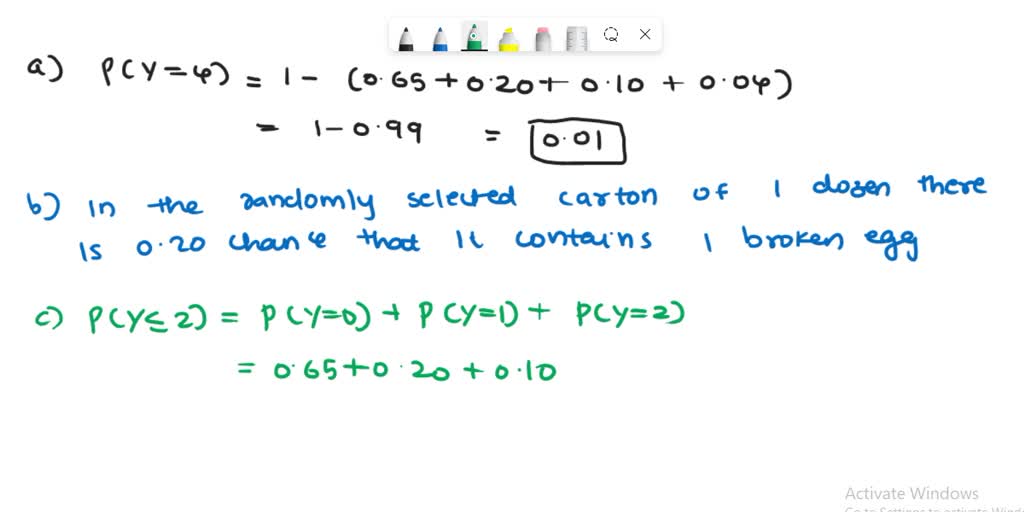 a) P(Y=4) = 1 - (0.65 + 0.20 + 0.10 + 0.04)
= 1 - 0.99 = 0.01
b) In the randomly selected carton of 1 dozen there
is 0.20 chance that it contains 1 broken egg
c) P(Y≤2) = P(Y=0) + P(Y=1) + P(Y=2)
= 0.65 + 0.20 + 0.10
Activate Windows
Go to Settings to activate Wind